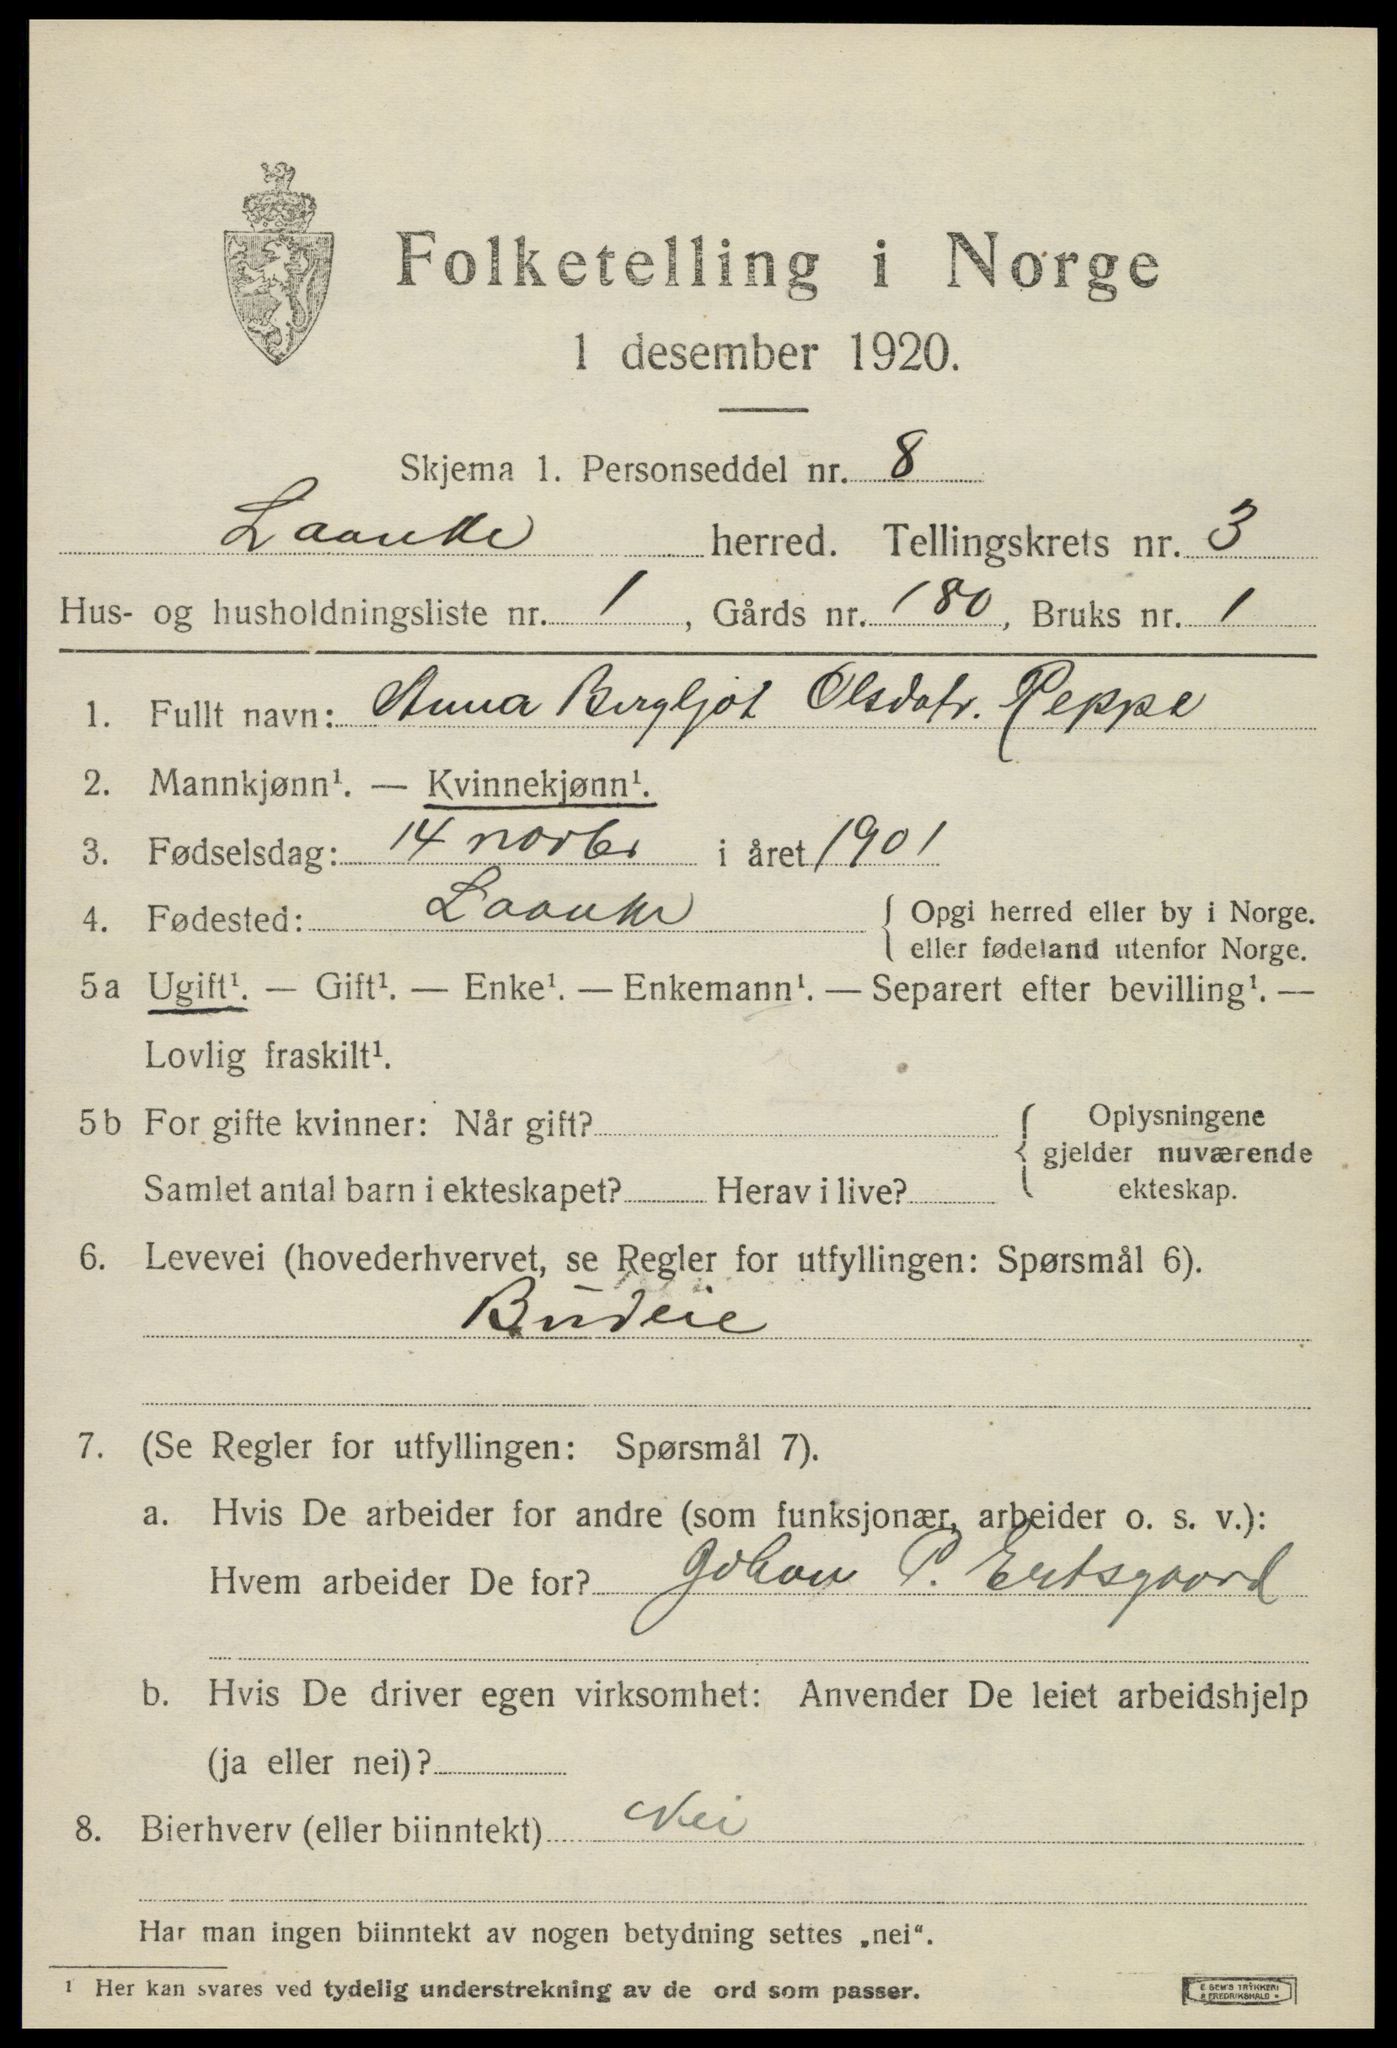 Folketelling i Norge
1 desember 1920.
Skjema 1. Personseddel nr. 8
Laanke herred. Tellingskrets nr. 3
Hus- og husholdningsliste nr. 1, Gårds nr. 180, Bruks nr. 1
1. Fullt navn: Anna Bergljot Olsdatr. Reppe
2. Mannkjønn¹. — Kvinnekjønn¹.
3. Fødselsdag: 14 novbr i året 1901
4. Fødested: Laanke { Opgi herred eller by i Norge.
eller fødeland utenfor Norge.
5a Ugift¹. — Gift¹. — Enke¹. — Enkemann¹. — Separert efter bevilling¹. —
Lovlig fraskilt¹.
5b For gifte kvinner: Når gift?
Samlet antal barn i ekteskapet? Herav i live?
{ Oplysningene
gjelder nuværende
ekteskap.
6. Levevei (hovederhvervet, se Regler for utfyllingen: Spørsmål 6).
Budeie
7. (Se Regler for utfyllingen: Spørsmål 7).
a. Hvis De arbeider for andre (som funksjonær, arbeider o. s. v.):
Hvem arbeider De for? Johan P. Ertsgaard
b. Hvis De driver egen virksomhet: Anvender De leiet arbeidshjelp
(ja eller nei)?
8. Bierhverv (eller biinntekt) Nei
Har man ingen biinntekt av nogen betydning settes „nei“.
1 Her kan svares ved tydelig understrekning av de ord som passer.
E SEM'S TRYKKERI
FREDRIKSHALD